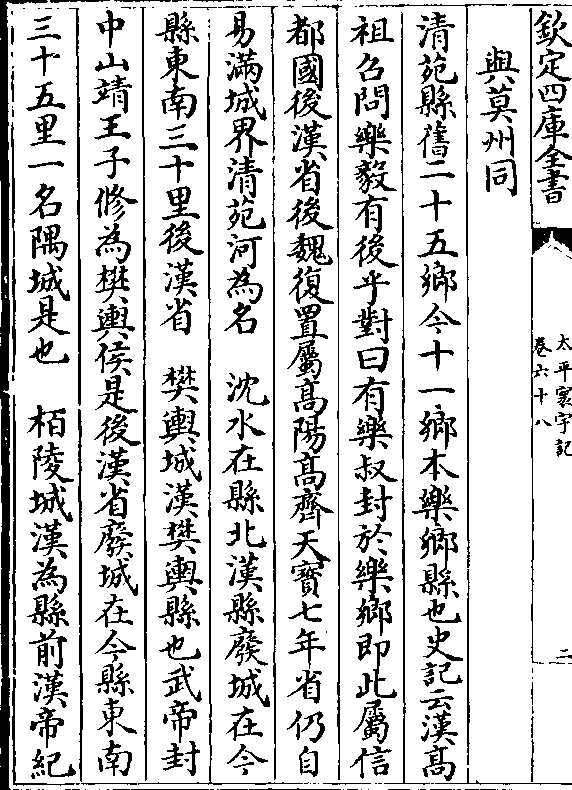 欽定四庫全書
太平寰宇記
卷六十八
二
與莫州同
清苑縣舊二十五鄉今十一鄉本樂鄉縣也史記云漢髙
祖召問樂毅有後乎對曰有樂叔封於樂鄉即此屬信
都國後漢省後魏復置屬髙陽髙齊天寳七年省仍自
易滿城界清苑河為名　沈水在縣北漢縣廢城在今
縣東南三十里後漢省　樊輿城漢樊輿縣也武帝封
中山靖王子修為樊輿侯是後漢省廢城在今縣東南
三十五里一名隅城是也　栢陵城漢為縣前漢帝紀